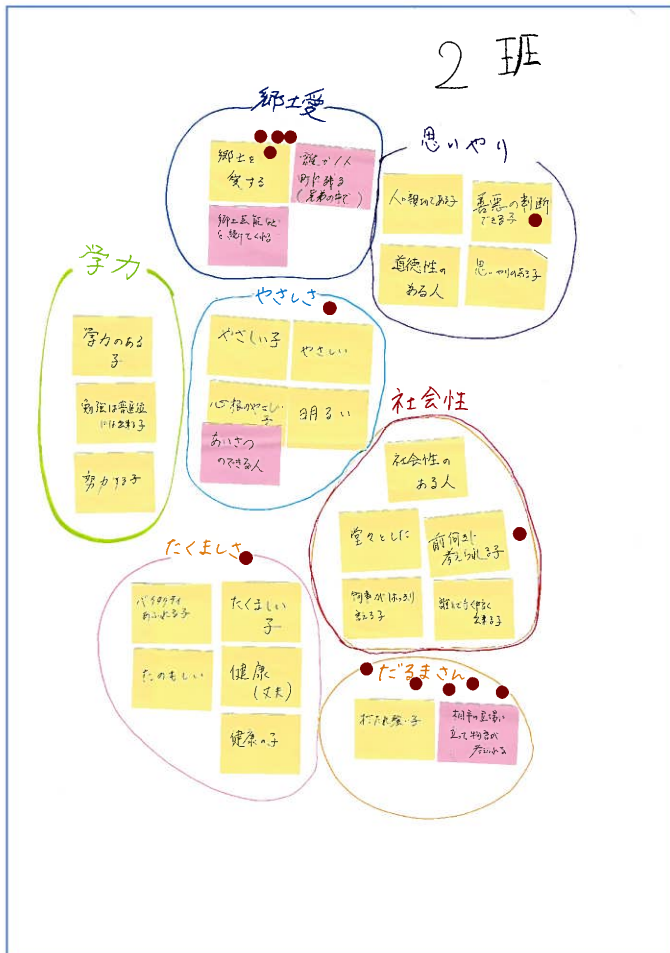 2班
郷土愛
郷土を
愛する
誰か1人
町に残る
(兄弟の中で)
郷土芸能などを
続けてくれる
思いやり
人に親切である子
善悪の判断
できる子
道徳性の
ある人
思いやりのある子
学力
学力のある
子
勉強は普通位
には出来る子
努力する子
やさしさ
やさしい子
やさしい
心根がやさしい
子
明るい
あいさつ
のできる人
社会性
社会性の
ある人
堂々とした
前向きに
考えられる子
物事がはっきり
言える子
誰とでも仲良く
出来る子
たくましさ
バイタリティ
あふれる子
たくましい
子
たのもしい
健康
(丈夫)
健康の子
だるまさん
打たれ強い子
相手の立場に
立って物事が
考えられる